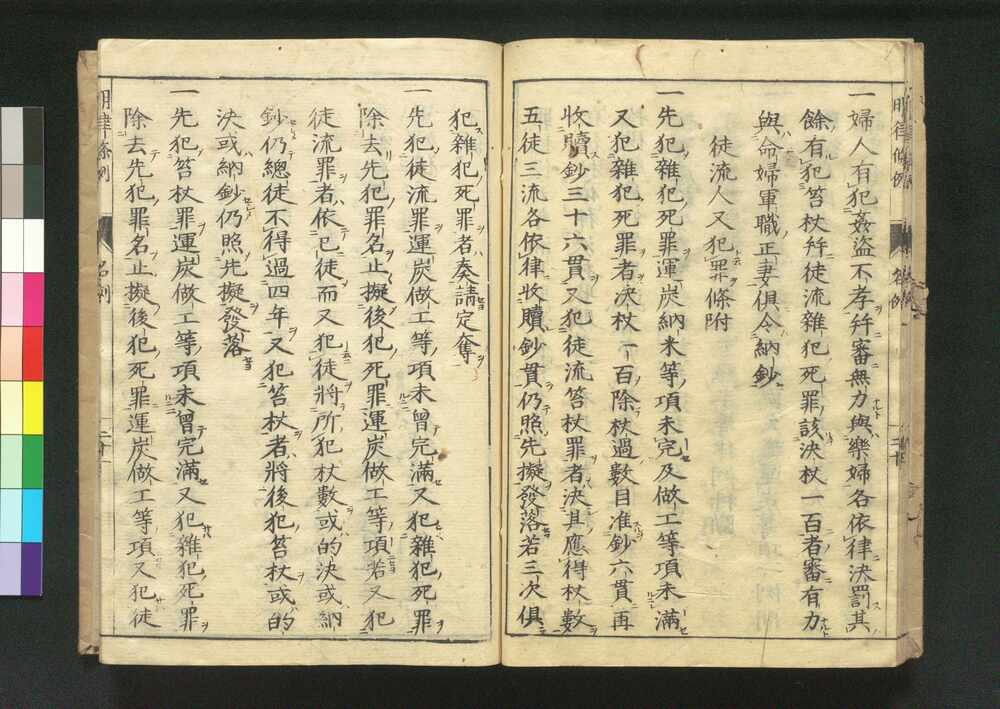 一婦人有犯姦盜不孝幷審無力與樂婦各依律決罰其
餘有犯笞杖幷徒流雜犯死罪該決杖一百者審有力
與命婦軍職正妻俱令納鈔
徒流人又犯罪條附
一先犯雜犯死罪運炭納米等項未完及做工等項未滿
又犯雜犯死罪者決杖一百除杖過數目准鈔六貫再
收贖鈔三十六貫又犯徒流笞杖罪者決其應得杖數
五徒三流各依律收贖鈔貫仍照先擬發落若三次俱
犯雜犯死罪者奏請定奪
一先犯徒流罪運炭做工等項未曾完滿又犯雜犯死罪
除去先犯罪名止擬後犯死罪運炭做工等項若又犯
徒流罪者依已徒而又犯徒將所犯杖數或的決或納
鈔仍總徒不得過四年又犯笞杖者將後犯笞杖或的
決或納鈔仍照先擬發落
一先犯笞杖罪運炭做工等項未曾完滿又犯雜犯死罪
除去先犯罪名止擬後犯死罪運炭做工等項又犯徒
明律條例
名例